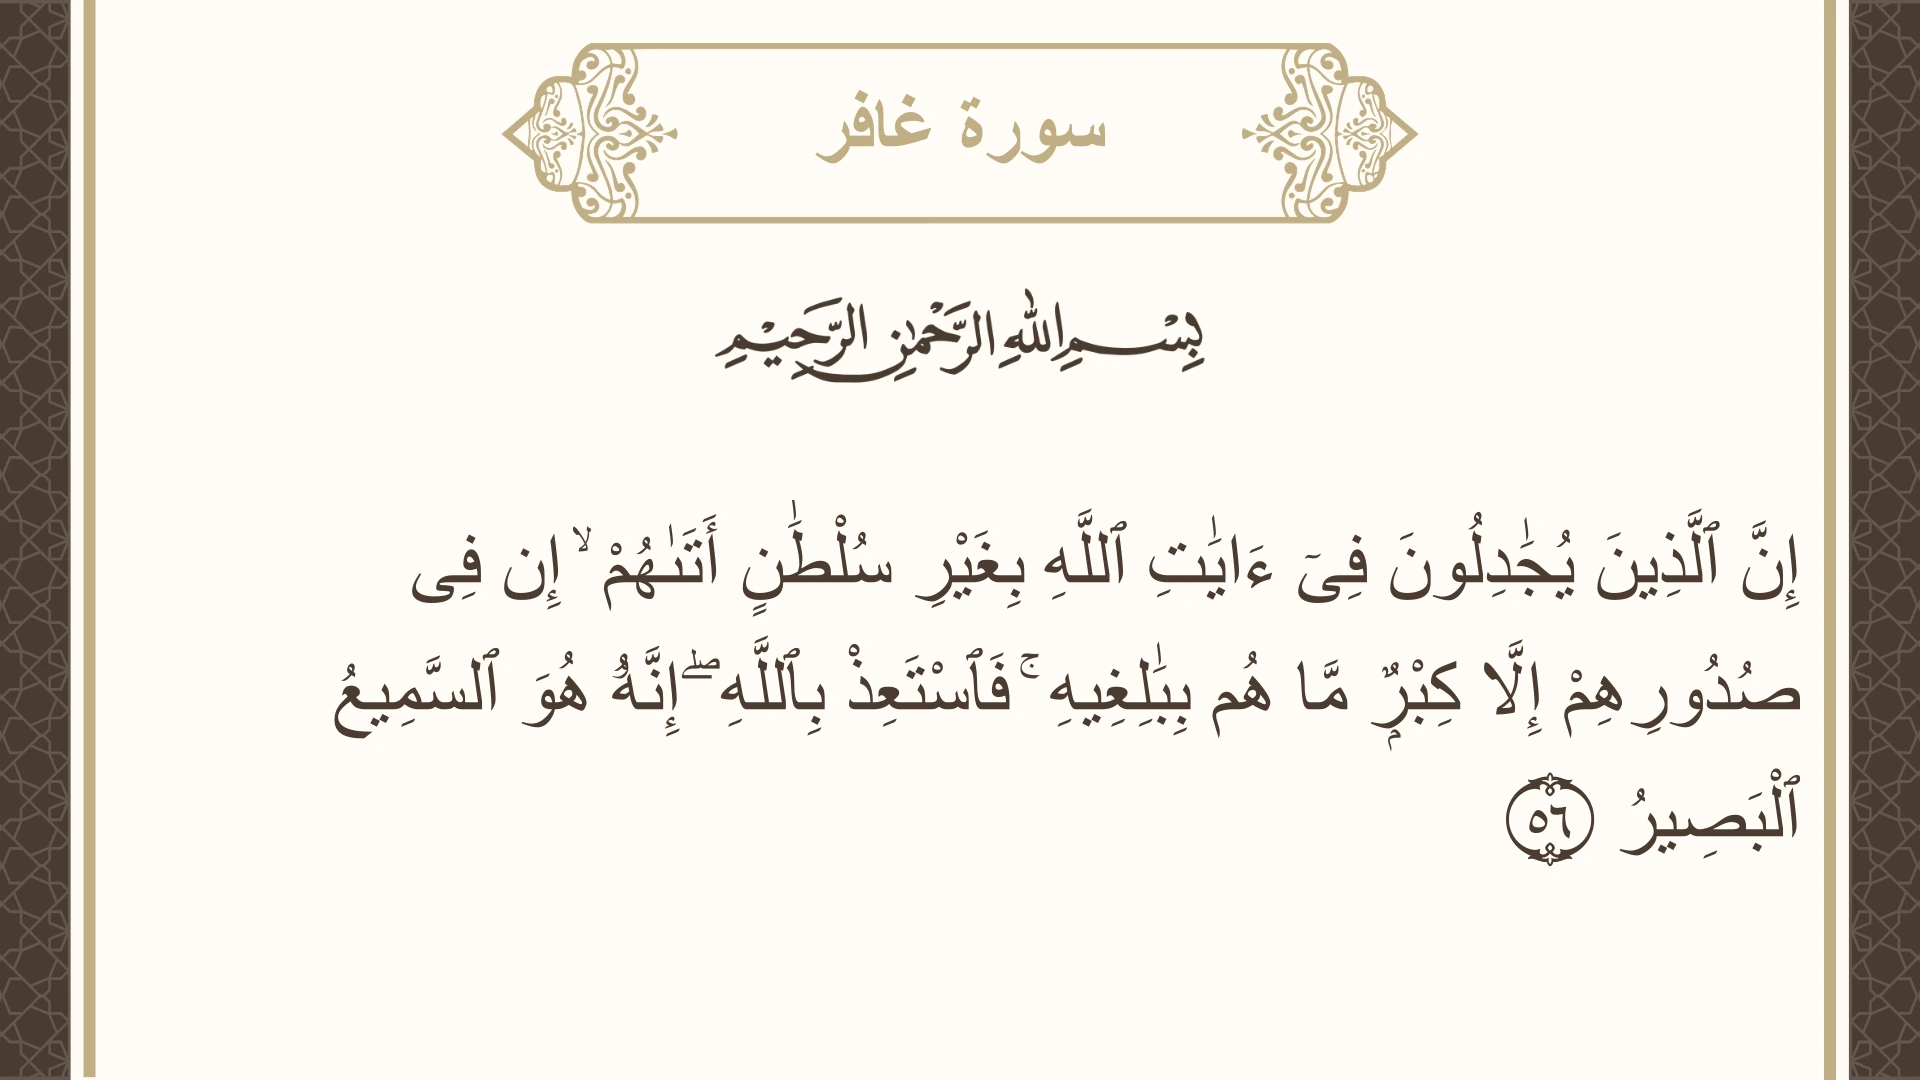 سورة غافر
بِسْمِ اللهِ الرَّحْمٰنِ الرَّحِيْمِ
إِنَّ ٱلَّذِينَ يُجَٰدِلُونَ فِىٓ ءَايَٰتِ ٱللَّهِ بِغَيْرِ سُلْطَٰنٍ أَتَىٰهُمْ ۙ إِن فِى
صُدُورِهِمْ إِلَّا كِبْرٌۭ مَّا هُم بِبَٰلِغِيهِ ۚ فَٱسْتَعِذْ بِٱللَّهِ ۖ إِنَّهُۥ هُوَ ٱلسَّمِيعُ
ٱلْبَصِيرُ ٥٦